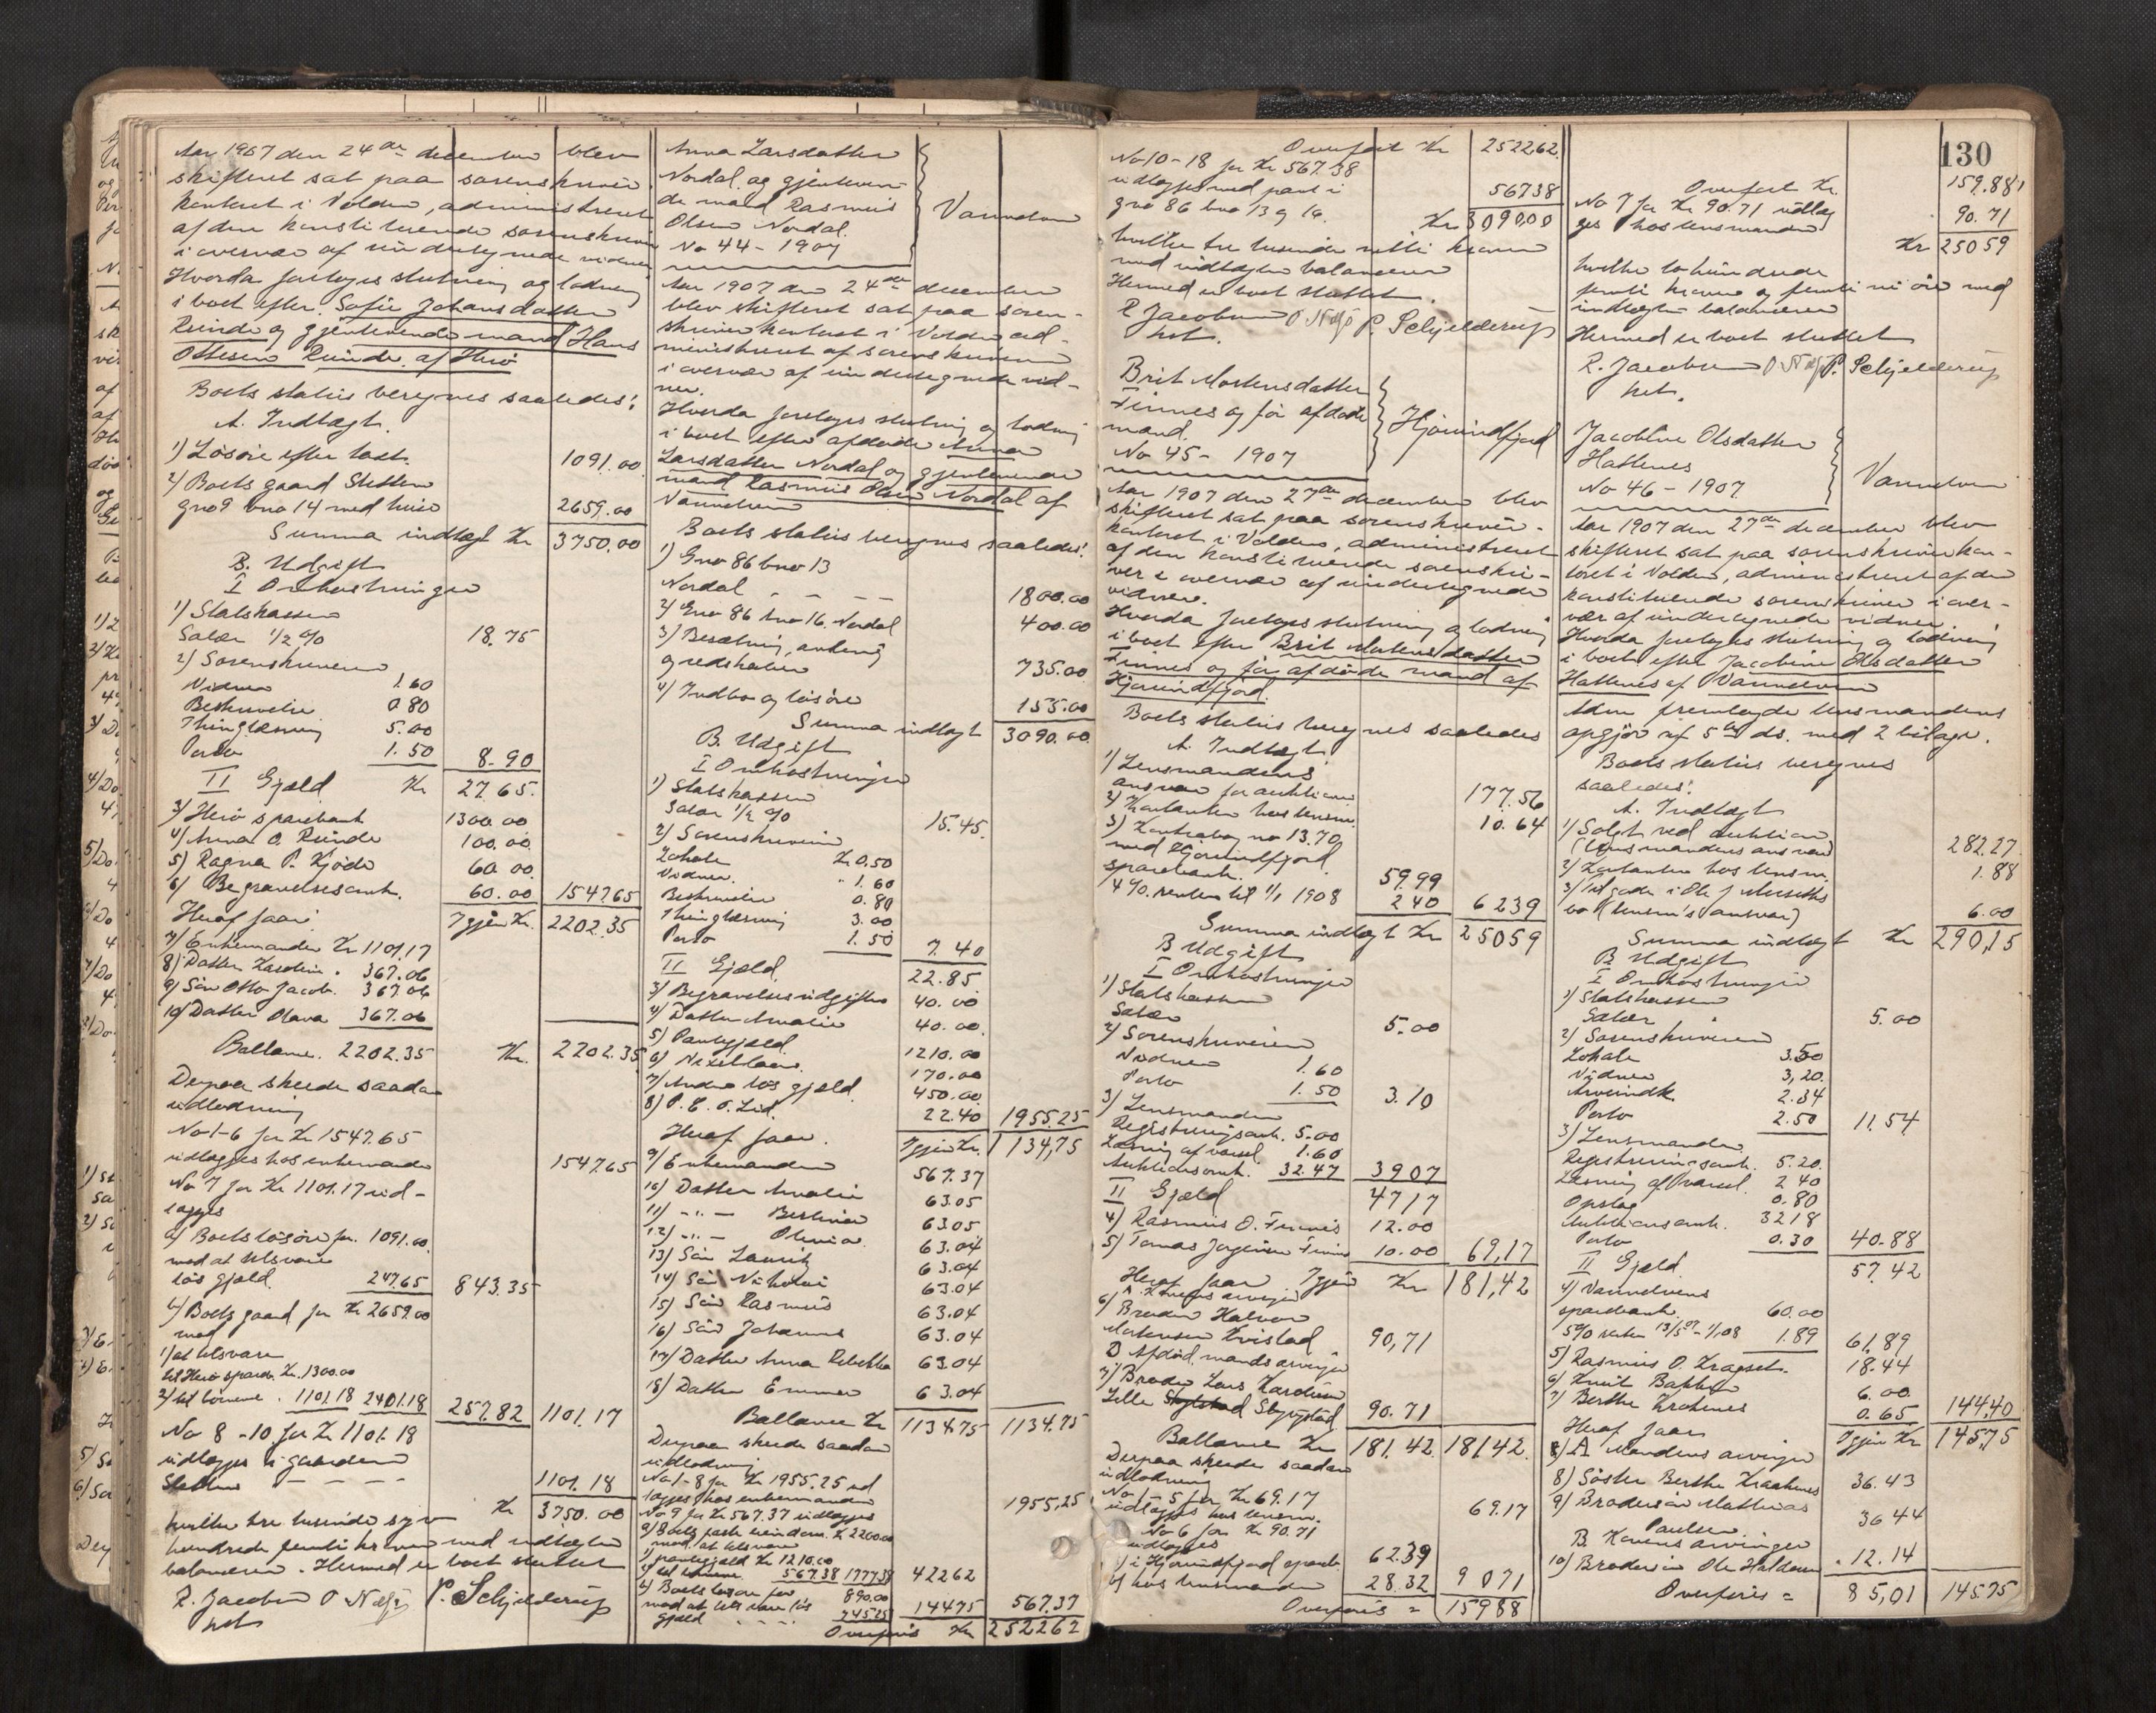 Aar 1907 den 24de december blev
skifteret sat paa sorenskriver-
kontoret i Volden, administreret
af den konstituerende sorenskriver
i overvær af undertegnede vidner
Hvorda foretoges slutning og lodning
i boet efter Sofie Johansdatter
Runde og gjenlevende mand Hans
Ottesen Runde af Herø
Boets status beregnes saaledes:
A. Indtægt.
1) Løsøre efter taxt. 1091.00
2) Boets gaard Sletten
gno 9 bno 14 med huse 2659.00
Summa indtægt Kr 3750.00
B. Udgift
I Omkostninger
1) Statskassen
Salær 1/2 % 18.75
2) Sorenskriveren
Vidner 1.60
Beskrivelse 0.80
Thinglæsning 5.00
Porto 1.50 8.90
II Gjæld Kr 27.65.
3) Herø sparebank 1300.00
4) Anna O. Runde 100.00
5) Ragna P. Kjøde 60.00
6) Begravelsesomk. 60.00 1547.65
Heraf faar: Igjen Kr. 2202.35
7) Enkemanden Kr 1101.17
8) Datter Karoline . 367.06
9) Søn Otto Jacob. 367.06
10) Datter Olava 367.06
Ballance. 2202.35 Kr. 2202.35
Derpaa skede saadan
udlodning
No 1-6 for Kr 1547.65
udlægges hos enkemanden 1547.65
No 7 for Kr 1101.17 ud-
lægges
a) Boets løsøre for 1091.00
mod at tilsvare
løs gjæld 247.65 843.35
b) Boets gaard for Kr 2659.00
mod
1) at tilsvare
til Herø spareb. Kr. 1300.00
2) til børnene . 1101.18 2401.18 257.82 1101.17
No 8 - 10 for Kr 1101.18
udlægges i gaarden
Sletten 1101.18
Kr 3750.00
hvilke tre tusinde syv
hundrede femti kroner med indtægten
balancerer. Hermed er boet sluttet
R. Jacobsen O Næss P. Schjelderup
kst
Anna Larsdatter
Nordal og gjenleven-
de mand Rasmus
Olsen Nordal.
No 44 - 1907
Vannelven
Aar 1907 den 24de december
blev skifteret sat paa soren-
skriverkontoret i Volden ad-
ministreret af sorenskriveren
i overvær af undertegnede vid-
ner.
Hvorda foretoges slutning og lodning
i boet efter afdøde Anna
Larsdatter Nordal og gjenlevende
mand Rasmus Olsen Nordal af
Vannelven
Boets status beregnes saaledes:
1) Gno 86 bno 13
Nordal - - - 1800.00
2) Gno 86 bno 16. Nordal 400.00
3) Besætning, avling
og redskaber 735.00
4) Indbo og løsøre 155.00
Summa indtægt 3090.00
B. Udgift
I Omkostninger
1) Statskassen
Salær 1/2 % 15.45.
2) Sorenskriveren
Lokale Kr 0.50
Vidner. " 1.60
Beskrivelse 0.80
Thinglæsning 3.00
Porto 1.50 7.40
II Gjæld. 22.85.
3) Begravelsesudgifter 40.00
4) Datter Amalie 40.00.
5) Pantegjæld 1210.00
6) Vexellaan. 170.00
7) Anden løs gjæld 450.00
8) P. E. O. Lid. 22.40 1955.25
Heraf faar. Igjen Kr. 1134,75
9) Enkemanden 567.37
10) Datter Amalie 63.05
11) - " - Berline 63.05
12) - " - Olivia 63.04
13) Søn Laurits 63.04
14) Søn Nikolai 63.04
15) Søn Rasmus 63.04
16) Søn Johannes 63.04
17) Datter Anna Rebekka 63.04
18) Datter Emma 63.04
Ballance Kr 1134.75 1134.75
Derpaa skede saadan
udlodning
No 1-8 for Kr 1955.25 ud
lægges hos enkemanden 1955,25
No 9 for Kr 567.37 udlægges
a) Boets faste eiendom. Kr 2200.00
mod at tilsvare
1) pantegjæld Kr 1210.00
2) til børnene. 567.38 1777.38 422 62
b) Boets løsøre for 890.00
mod at tilsvare løs
gjæld 745.25 144 75 567.37
Overføres Kr 2522 62
130
Overført Kr 2522,62.
No 10 - 18 for Kr 567.38
udlægges med part i
gno 86 bno 13 og 16. 567 38
Kr 3090,00
hvilke tre tusinde nitti kroner
med indtægten balancerer
Hermed er boet sluttet.
R Jacobsen O Næss P. Schjelderup
kst.
Brit Mortensdatter
Finnes og før afdøde
mand.
No 45 - 1907
Hjørundfjord
Aar 1907 den 27de december blev
skifteret sat paa sorenskriver-
kontoret i Volden, administreret
af den konstituerende sorenskri-
ver i overvær af undertegnede
vidner.
Hvorda foretoges slutning og lodning
i boet efter Brit Mortensdatter
Finnes og før afdøde mand af
Hjørundfjord.
Boets status beregnes saaledes
A. Indtægt
1) Lensmandens
ansvar for auktionen 177.56
2) Kontanter hos lensm. 10.64
3) Kontrabog no 1370
med Hjørundfjord
sparebank. 59.99
4 % renter til 1/1 1908 2 40 62 39
Summa indtægt Kr 250 59
B Udgift
I Omkostninger
1) Statskassen
Salær 5.00
2) Sorenskriveren
Vidner 1.60
Porto 1.50 3.10
3) Lensmanden
Registreringsomk. 5.00
Læsning af varsel 1.60
Auktionsomk. 32.47 39 07
II Gjæld 47 17
4) Rasmus O. Finnes 12.00
5) Tomas Jørgensen Finnes 10.00 69,17
Heraf faar Igjen Kr 181,42
A. Konens arvinger
6) Broder Halvor
Mortensen Kvistad 90,71
B Afdød mands arvinger
7) Broder Lars Karolius
Lille Standal Stavstad 90.71
Ballance Kr 181.42 181.42
Derpaa skede saadan
udlodning
No 1 - 5 for Kr 69.17
udlægges hos lensm. 69.17
No 6 for Kr 90.71
udlægges
a) i Hjørundfjord spareb. 62.39
b) hos lensmanden 28.32 90 71
Overføres = 159 88
Overført Kr. 159.88
No 7 for Kr 90.71 udlæg
ges hos lensmanden 90.71
Kr 250 59
hvilke to hundrede
femti kroner og femti ni øre med
indtægten balancerer
Hermed er boet sluttet
R. Jacobsen O Næss P. Schjelderup
kst.
Jacobine Olsdatter
Hattenes
No 46 - 1907
Vannelven
Aar 1907 den 27de december blev
skifteret sat paa sorenskriverkon-
toret i Volden, administreret af den
konstituerende sorenskriver i over-
vær af undertegnede vidner.
Hvorda foretoges slutning og lodning
i boet efter Jacobine Olsdatter
Hattenes af Vannelven
Adm. fremlagde lensmandens
opgjør af 5te ds. med 2 bilage.
Boets status beregnes
saaledes:
A. Indtægt
1) Solgt ved auktion
(lensmandens ansvar) 282.27.
2) Kontanter hos lensm. 1.88
3) Tilgode i Ole J Myrseths
bo (lensm's ansvar) 6.00
Summa indtægt Kr 290,15
B Udgift
I Omkostninger
1) Statskassen
Salær 5.00
2) Sorenskriveren
Lokale 3.50
Vidner 3,20.
Arveindk. 2.34
Porto 2.50 11.54
3) Lensmanden
Registreringsomk. 5.20.
Læsning af Varsel. 2 40
Opslag 0.80
Auktionsomk. 32 18
Porto 0.30 40.88
II Gjæld 57.42
4) Vannelvens
sparebank. 60.00
5% renter 13/5 07 - 1/1 08 1.89 61,89
5) Rasmus O. Kragset. 18.44
6) Knut Bakken 6.00
7) Berthe Kraknes 0.65 144,40
Heraf faar Igjen Kr 145,75
A Mandens arvinger
8) Søster Berthe Kraaknes 36.43
9) Brodersøn Mathias
Paulsen 36 44
B. Konens arvinger
10) Brodersøn Ole Haldorsen . 12.14
Overføres = 85,01 145.75